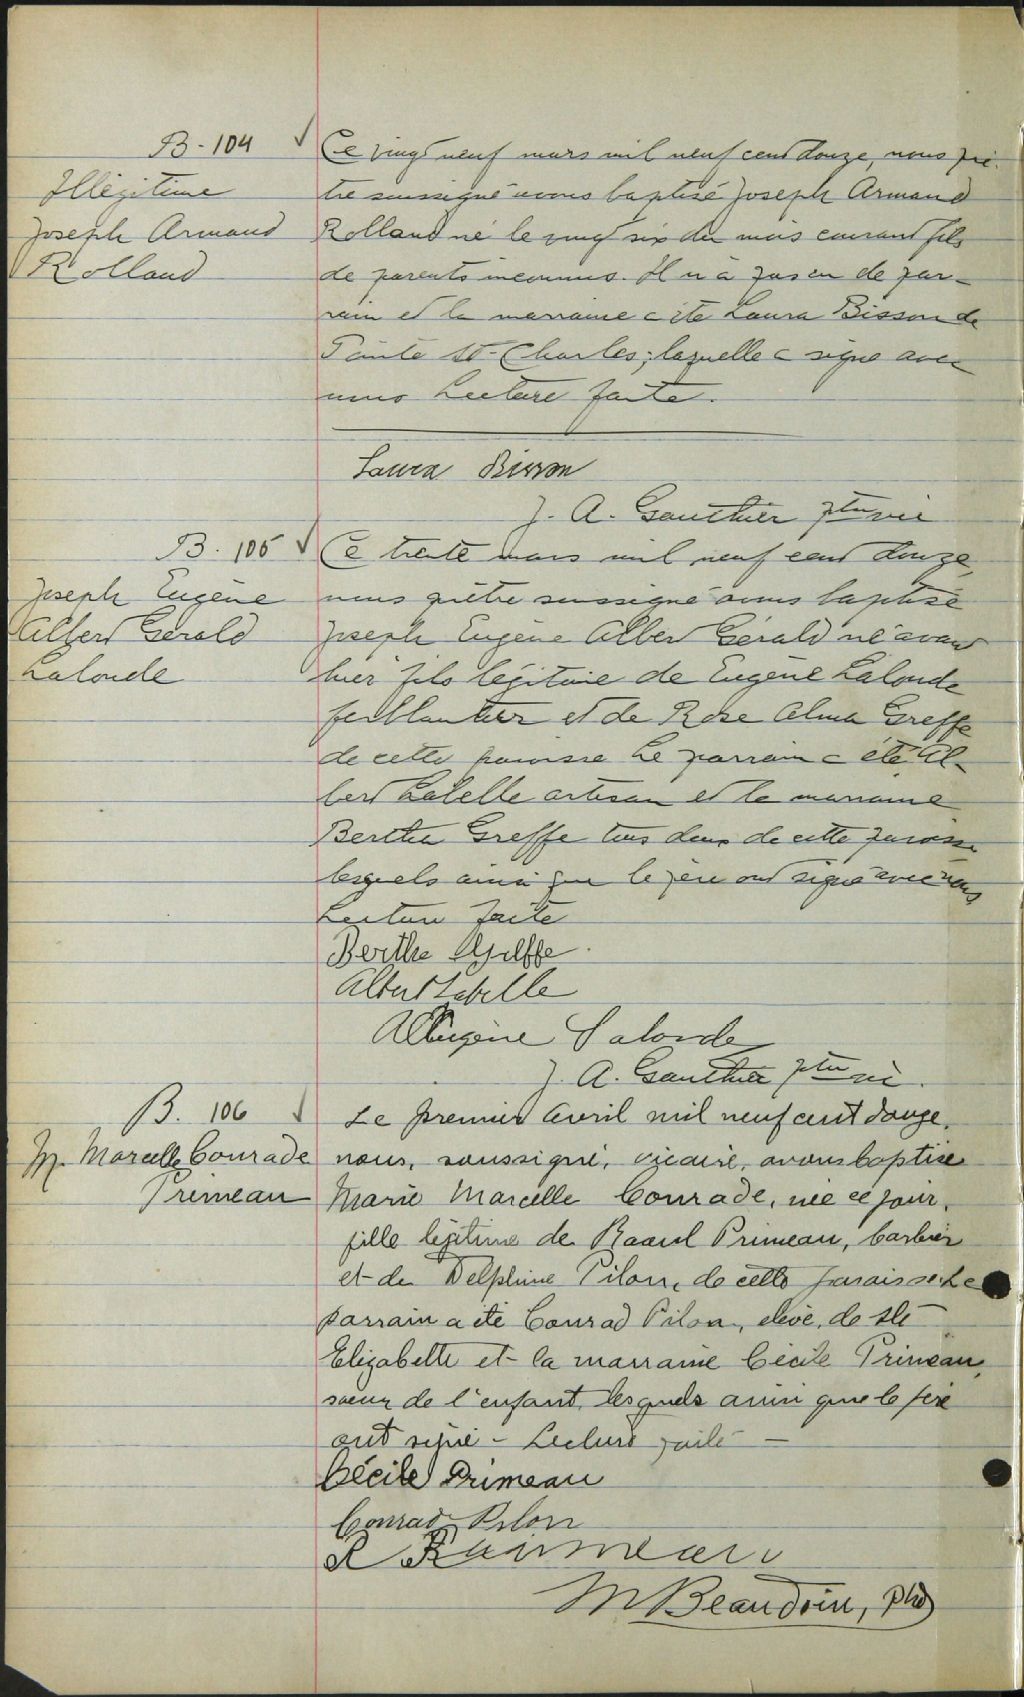 B-104
Illégitime
Joseph Armand
Rolland
Ce vingt neuf mars mil neuf cent douze, nous prê-
tre soussigné avons baptisé Joseph Armand
Rolland né le vingt six du mois courant fils
de parents inconnus. Il n'a pas eu de par-
rain et la marraine a été Laura Bisson de
Pointe St-Charles; laquelle a signé avec
nous Lecture faite.
Laura Bisson
J. A. Gauthier ptre vic
B. 105
Joseph Eugène
Albert Gérald
Lalonde
Ce trente mars mil neuf cent douze,
nous prêtre soussigné avons baptisé
Joseph Eugène Albert Gérald né avant
hier fils légitime de Eugène Lalonde
ferblantier et de Rose Alma Greffe
de cette paroisse Le parrain a été Al-
bert Labelle artisan et la marraine
Bertha Greffe tous deux de cette paroisse
lesquels ainsi que le père ont signé avec nous
Lecture faite
Berthe Greffe
Albert Labelle
Eugène Lalonde
J. A. Gauthier ptre vic.
B. 106
M. Marcelle Conrade
Primeau
Le premier avril mil neuf cent douze,
nous, soussigné, vicaire, avons baptisé
Marie Marcelle Conrade, née ce jour,
fille légitime de Raoul Primeau, barbier
et de Delphine Pilon, de cette paroisse. Le
parrain a été Conrad Pilon, élève, de Ste
Elizabeth et la marraine Cécile Primeau,
soeur de l'enfant, lesquels ainsi que le père
ont signé - Lecture faite -
Cécile Primeau
Conrad Pilon
R Primeau
M Beaudoin, ptre